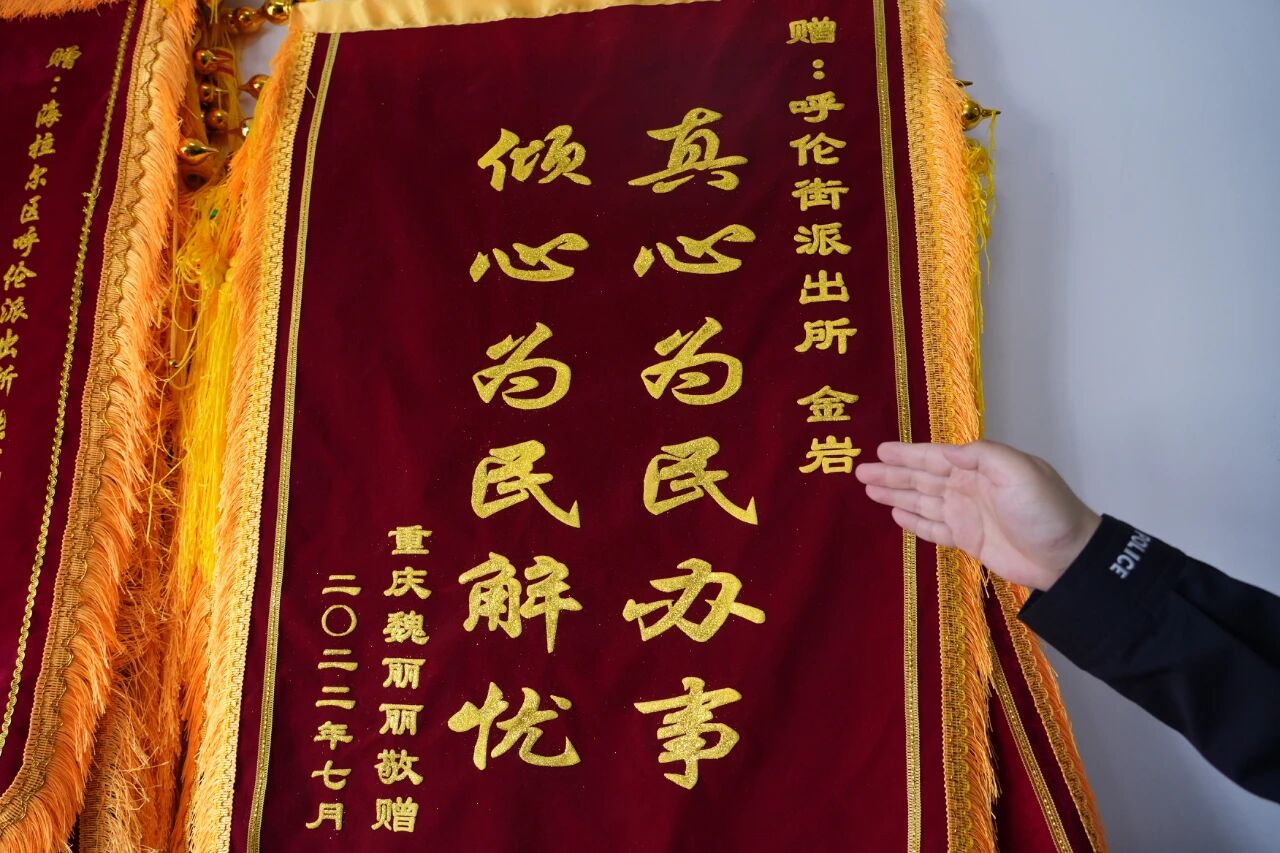 赠：呼伦街派出所 金岩
真心为民办事
倾心为民解忧
重庆魏丽丽敬赠
二〇二二年七月
赠：海拉尔区呼伦派出所
POLICE